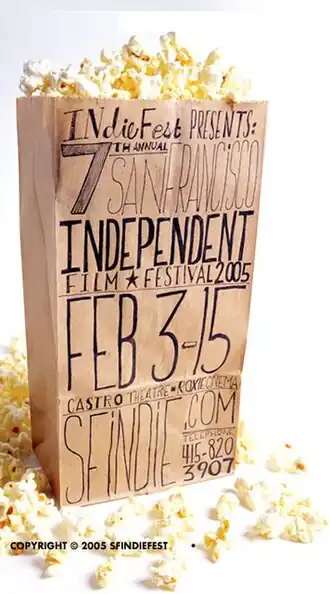 INdieFest PRESENTS:
7TH ANNUAL
SANFRANCISCO
INDEPENDENT
FILM★FESTIVAL2005
FEB 3-15
CASTRO THEATRE★ROXIE CINEMA
SFINDIE.COM
TELEPHONE
415-820
3907
COPYRIGHT © 2005 SFINDIEFEST •